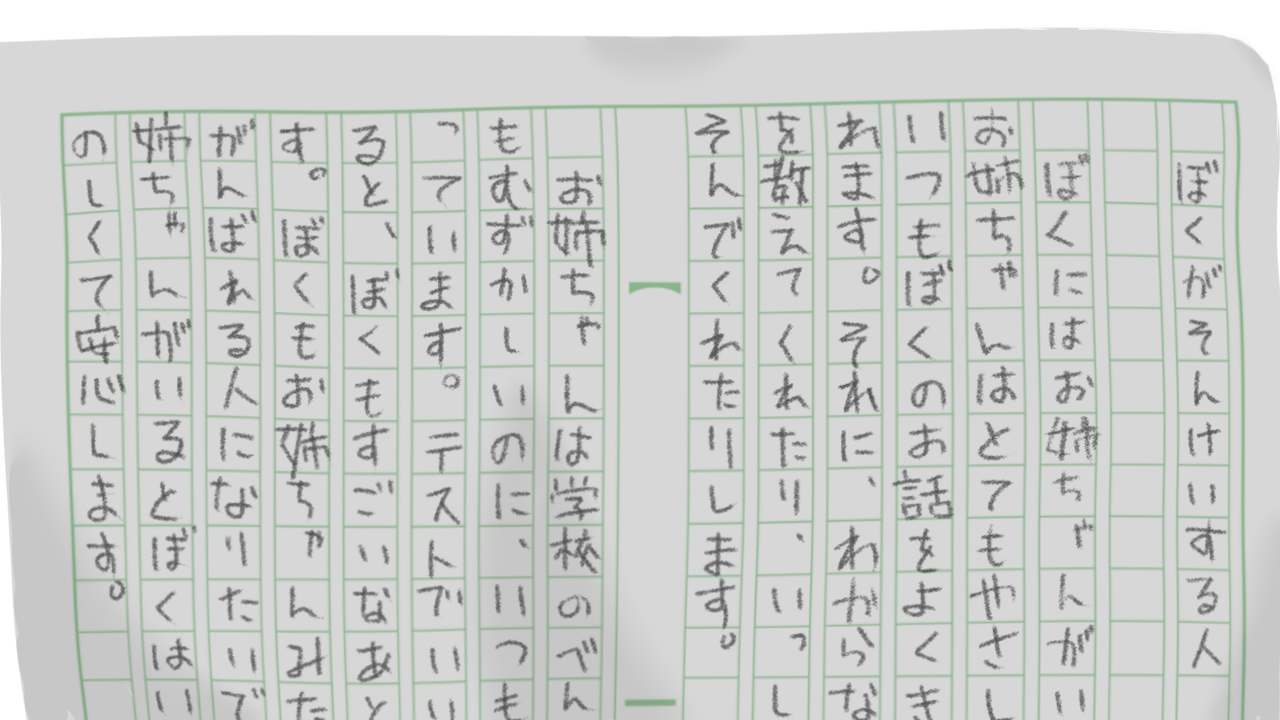 ぼくがそんけいする人
ぼくにはお姉ちゃんがい
お姉ちゃんはとてもやさし
いつもぼくのお話をよくき
れます。それに、わからな
を教えてくれたり、いっし
そんでくれたりします。
お姉ちゃんは学校のべん
もむずかしいのに、いつも
っています。テストでいい
ると、ぼくもすごいなあと
す。ぼくもお姉ちゃんみた
がんばれる人になりたいで
姉ちゃんがいるとぼくはい
のしくて安心します。